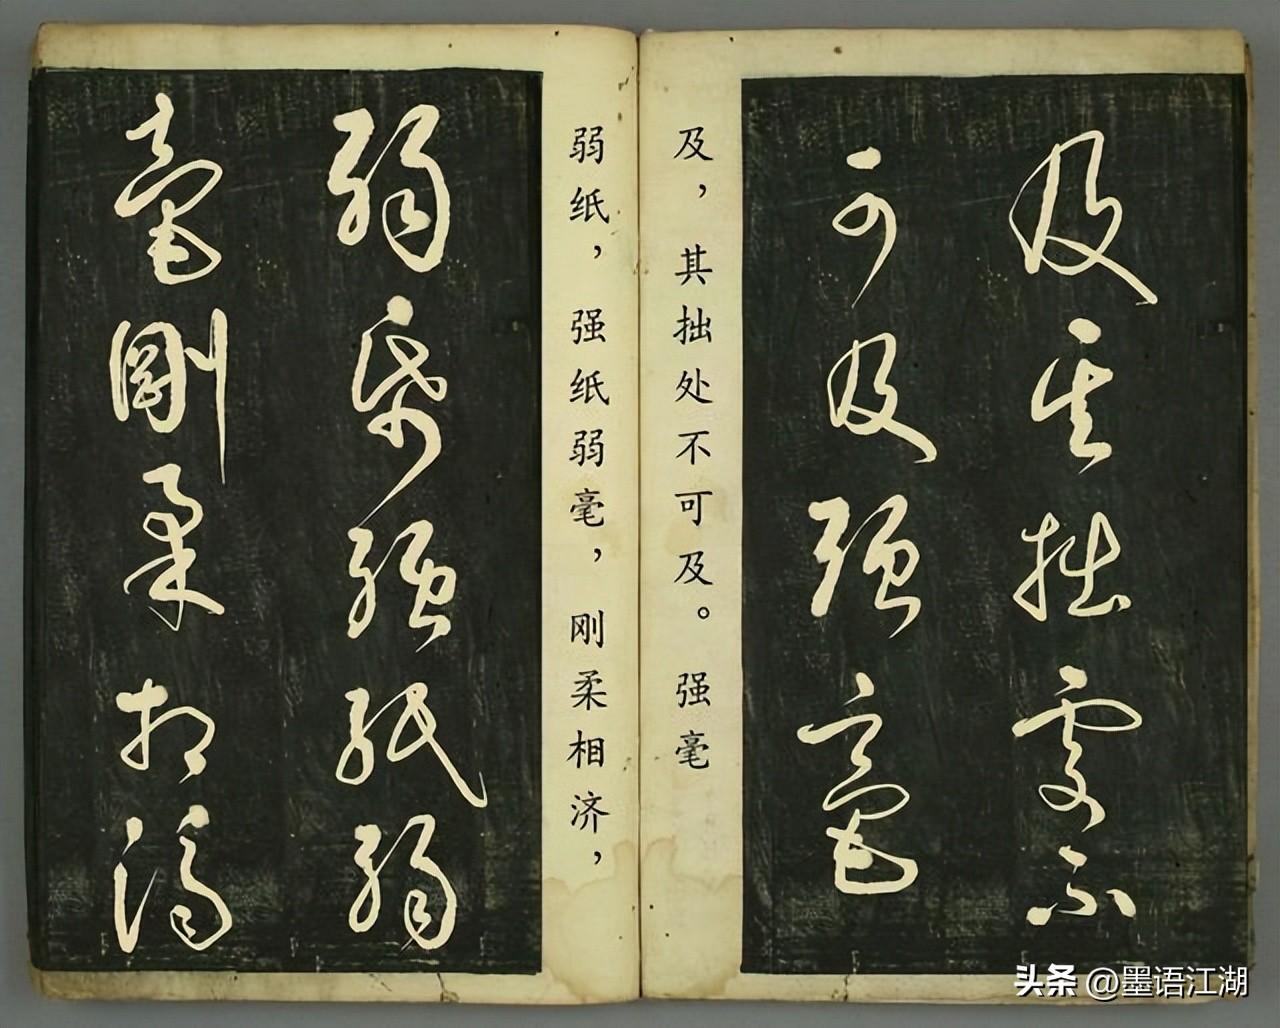 及其拙處不
可及强毫
及，其拙处不可及。强毫
弱纸，强纸弱毫，刚柔相济，
弱帋强紙弱
毫剛柔相濟
头条 @墨语江湖